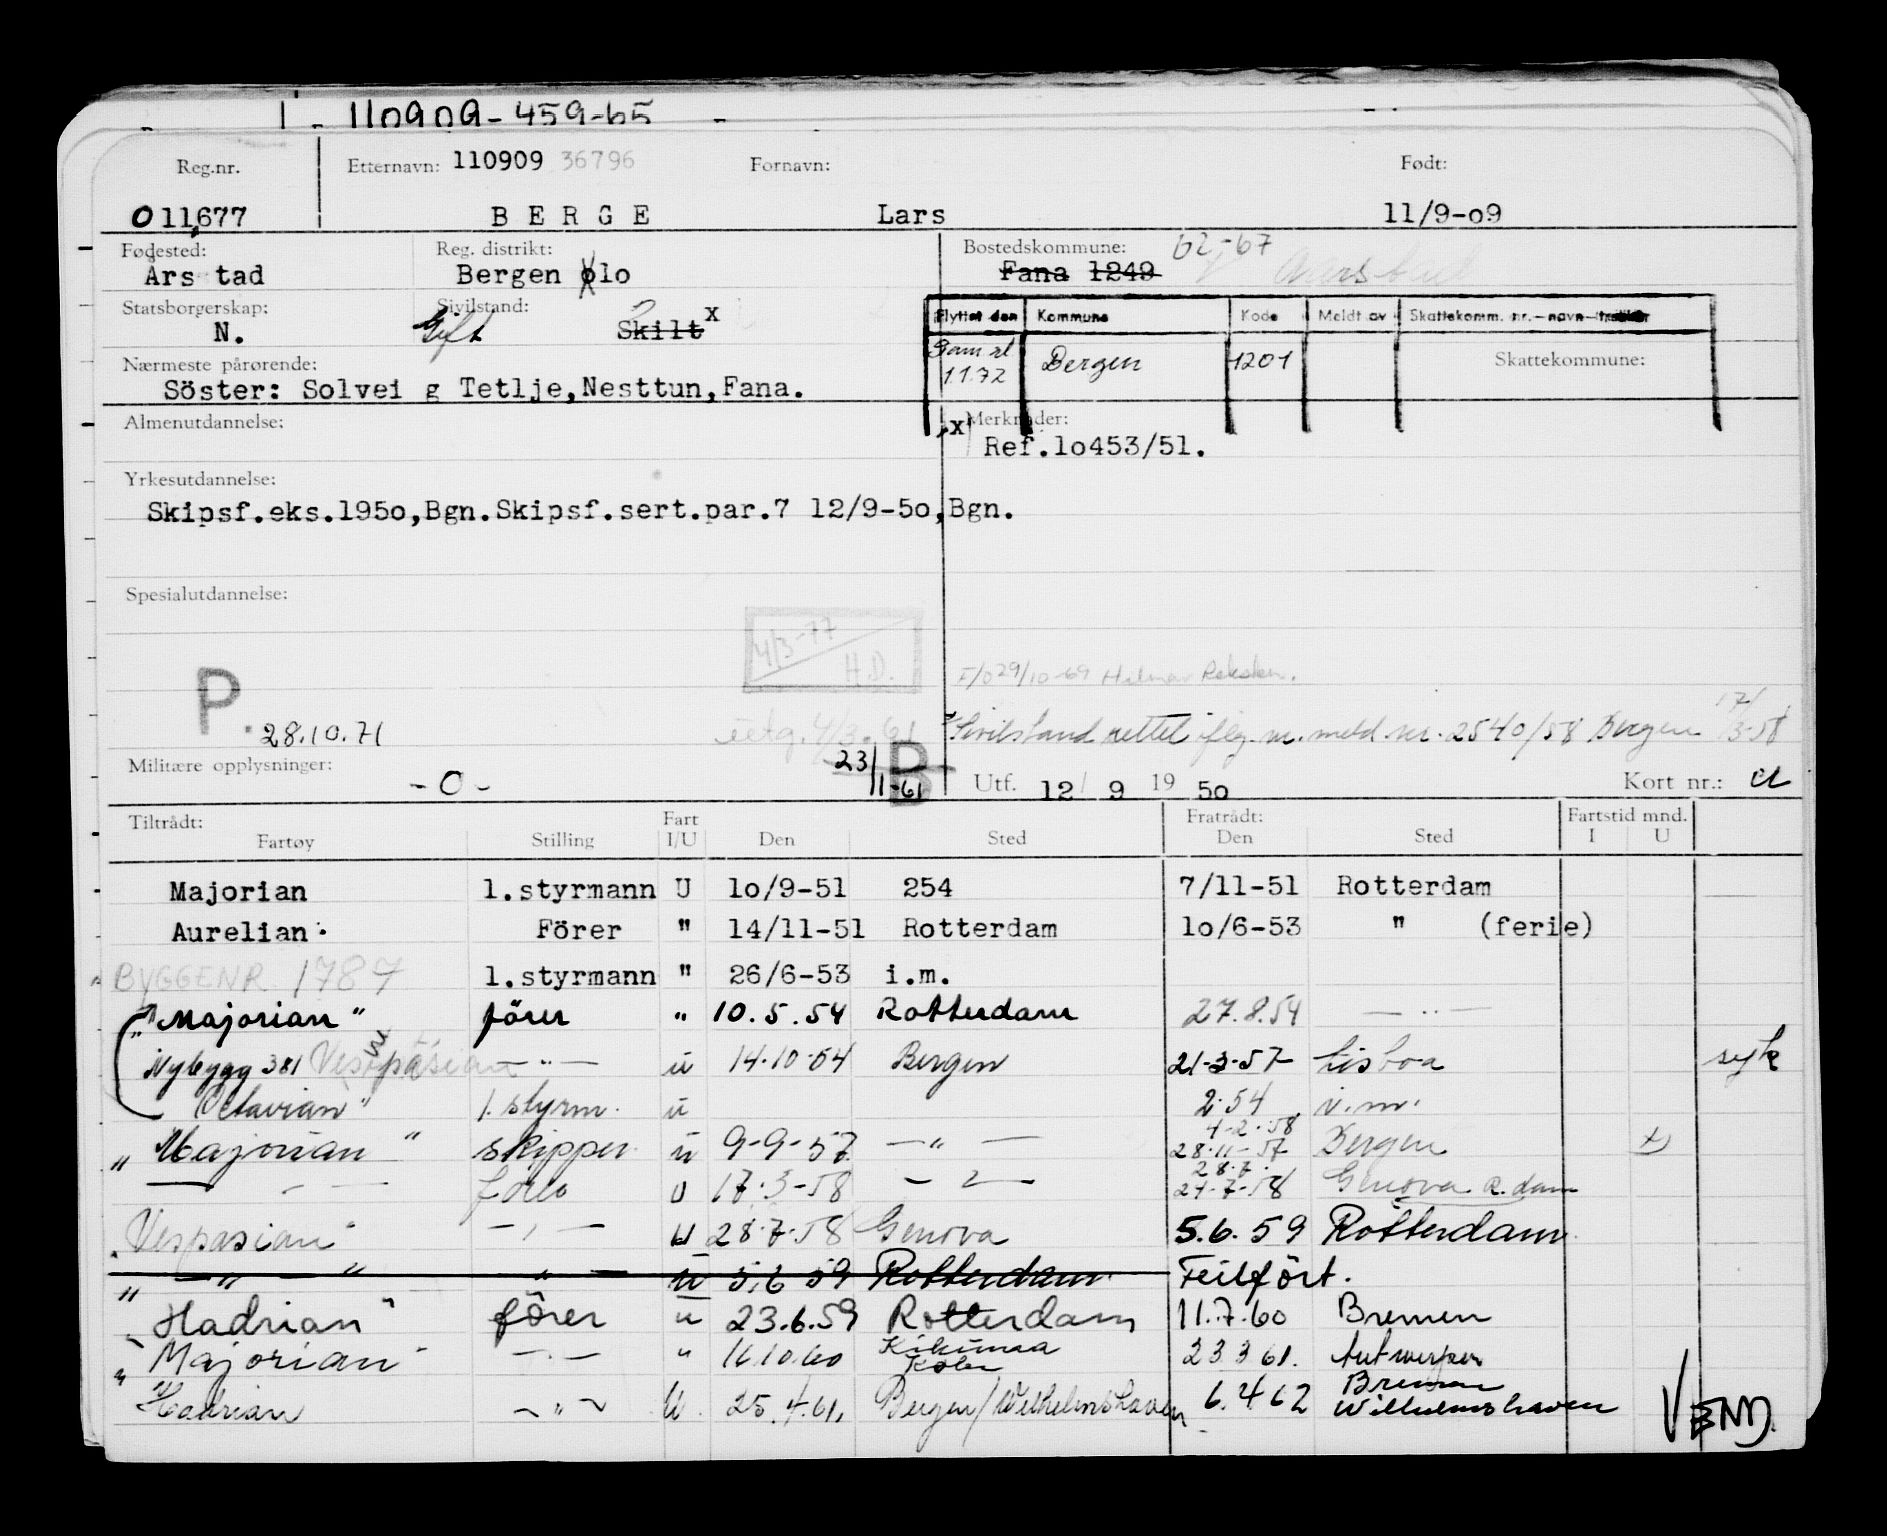 110909-459-65
Reg.nr. Etternavn: 110909 36796 Fornavn: Født:
011677 BERGE Lars 11/9-o9
Fødested: Reg. distrikt: Bostedskommune: 62-67
Årstad Bergen olo Fana 1249
Statsborgerskap: Sivilstand:
N. Gift Skilt x
Flyttet den Kommune Kode Meldt av Skattekomm. nr.-navn-
1.1.72 Bergen 1201 Skattekommune:
Nærmeste pårørende:
Söster: Solvei g Tetlje,Nesttun,Fana.
Almenutdannelse: x Merknader:
Ref.1o453/51.
Yrkesutdannelse:
Skipsf.eks.195o,Bgn.Skipsf.sert.par.7 12/9-5o,Bgn.
Spesialutdannelse:
4/3-77
H.D.
F/O 29/10-69 Hilmar Reksten.
P. 28.10.71 utg. 4/3.61
Sivilstand rettet iflg. m. meld. nr. 2540/58 Bergen 17/3-58
Militære opplysninger: -0- 23/1-61 B Utf. 12/ 9 19 5o Kort nr.:
Tiltrådt: Fart Fratrådt: Fartstid mnd.
Fartøy Stilling I/U Den Sted Den Sted I U
Majorian 1.styrmann U 1o/9-51 254 7/11-51 Rotterdam
Aurelian Förer " 14/11-51 Rotterdam 1o/6-53 " (ferie)
BYGGENR. 1787 1.styrmann " 26/6-53 i.m.
"Majorian" förer " 10.5.54 Rotterdam 27.8.54 — " —
Nybygg 381 Vespasian — " — u 14.10.54 Bergen 21-3-57 Lisboa syk
Octavian" 1. styrm. u 2.54 i.m.
4-2-58
"Majorian" skipper u 9-9-57 — " — 28.11-57 Bergen
28.7.
— " — förer u 17.3-58 — " — 24-7-58 Genova R.dam
"Vespasian" — " — u 28.7.58 Genova 5.6.59 Rotterdam
" — " — " " — u 5.6 59 Rotterdam Feilfört.
"Hadrian" förer u 23.6.59 Rotterdam 11.7.60 Bremen
"Majorian" — " — " 16.10.60 23 3 61. Antwerpen
Bremen
"Hadrian — " — U. 25.4.61. Bergen/Wilhelmshaven 6.4.62 Wilhelmshaven
VEND.